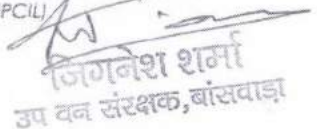 PCIL)
जिगनेश शर्मा
उप वन संरक्षक,बांसवाड़ा